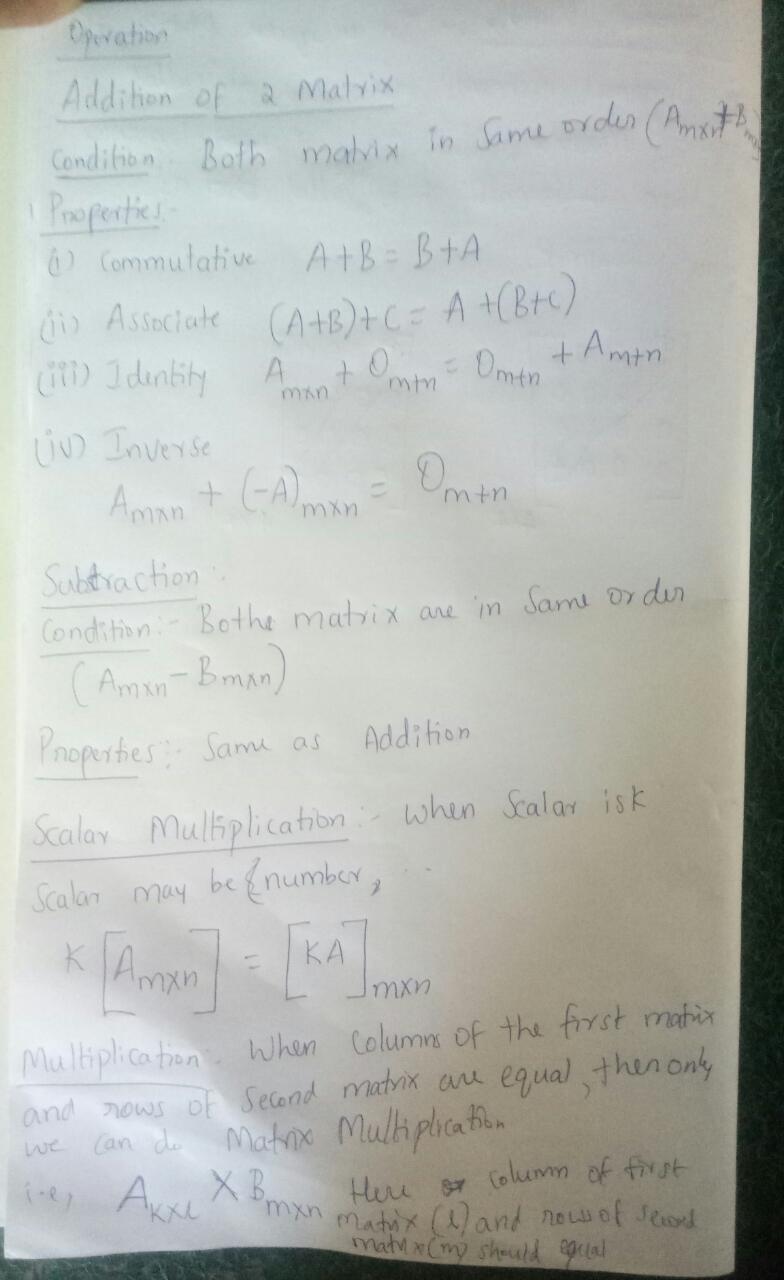 Operation
Addition of 2 Matrix
Condition. Both matrix in same order (Amxn+Bmxn)
Properties:-
(i) Commutative A+B = B+A
(ii) Associate (A+B)+C = A+(B+C)
(iii) Identity Amxn + Om+n = Om+n + Am+n
(iv) Inverse
Amxn + (-A)mxn = Om+n
Subtraction:
Condition:- Bothe matrix are in same order
(Amxn - Bmxn)
Properties:- Same as Addition
Scalar Multiplication:- when Scalar is k
Scalar may be {number,
K [Amxn] = [KA]mxn
Multiplication:. When Columns of the first matrix
and rows of Second matrix are equal, then only
we can do Matrix Multiplication
i.e, Akxl X Bmxn Here column of first
matrix (l) and rows of second
matrix(m) should equal